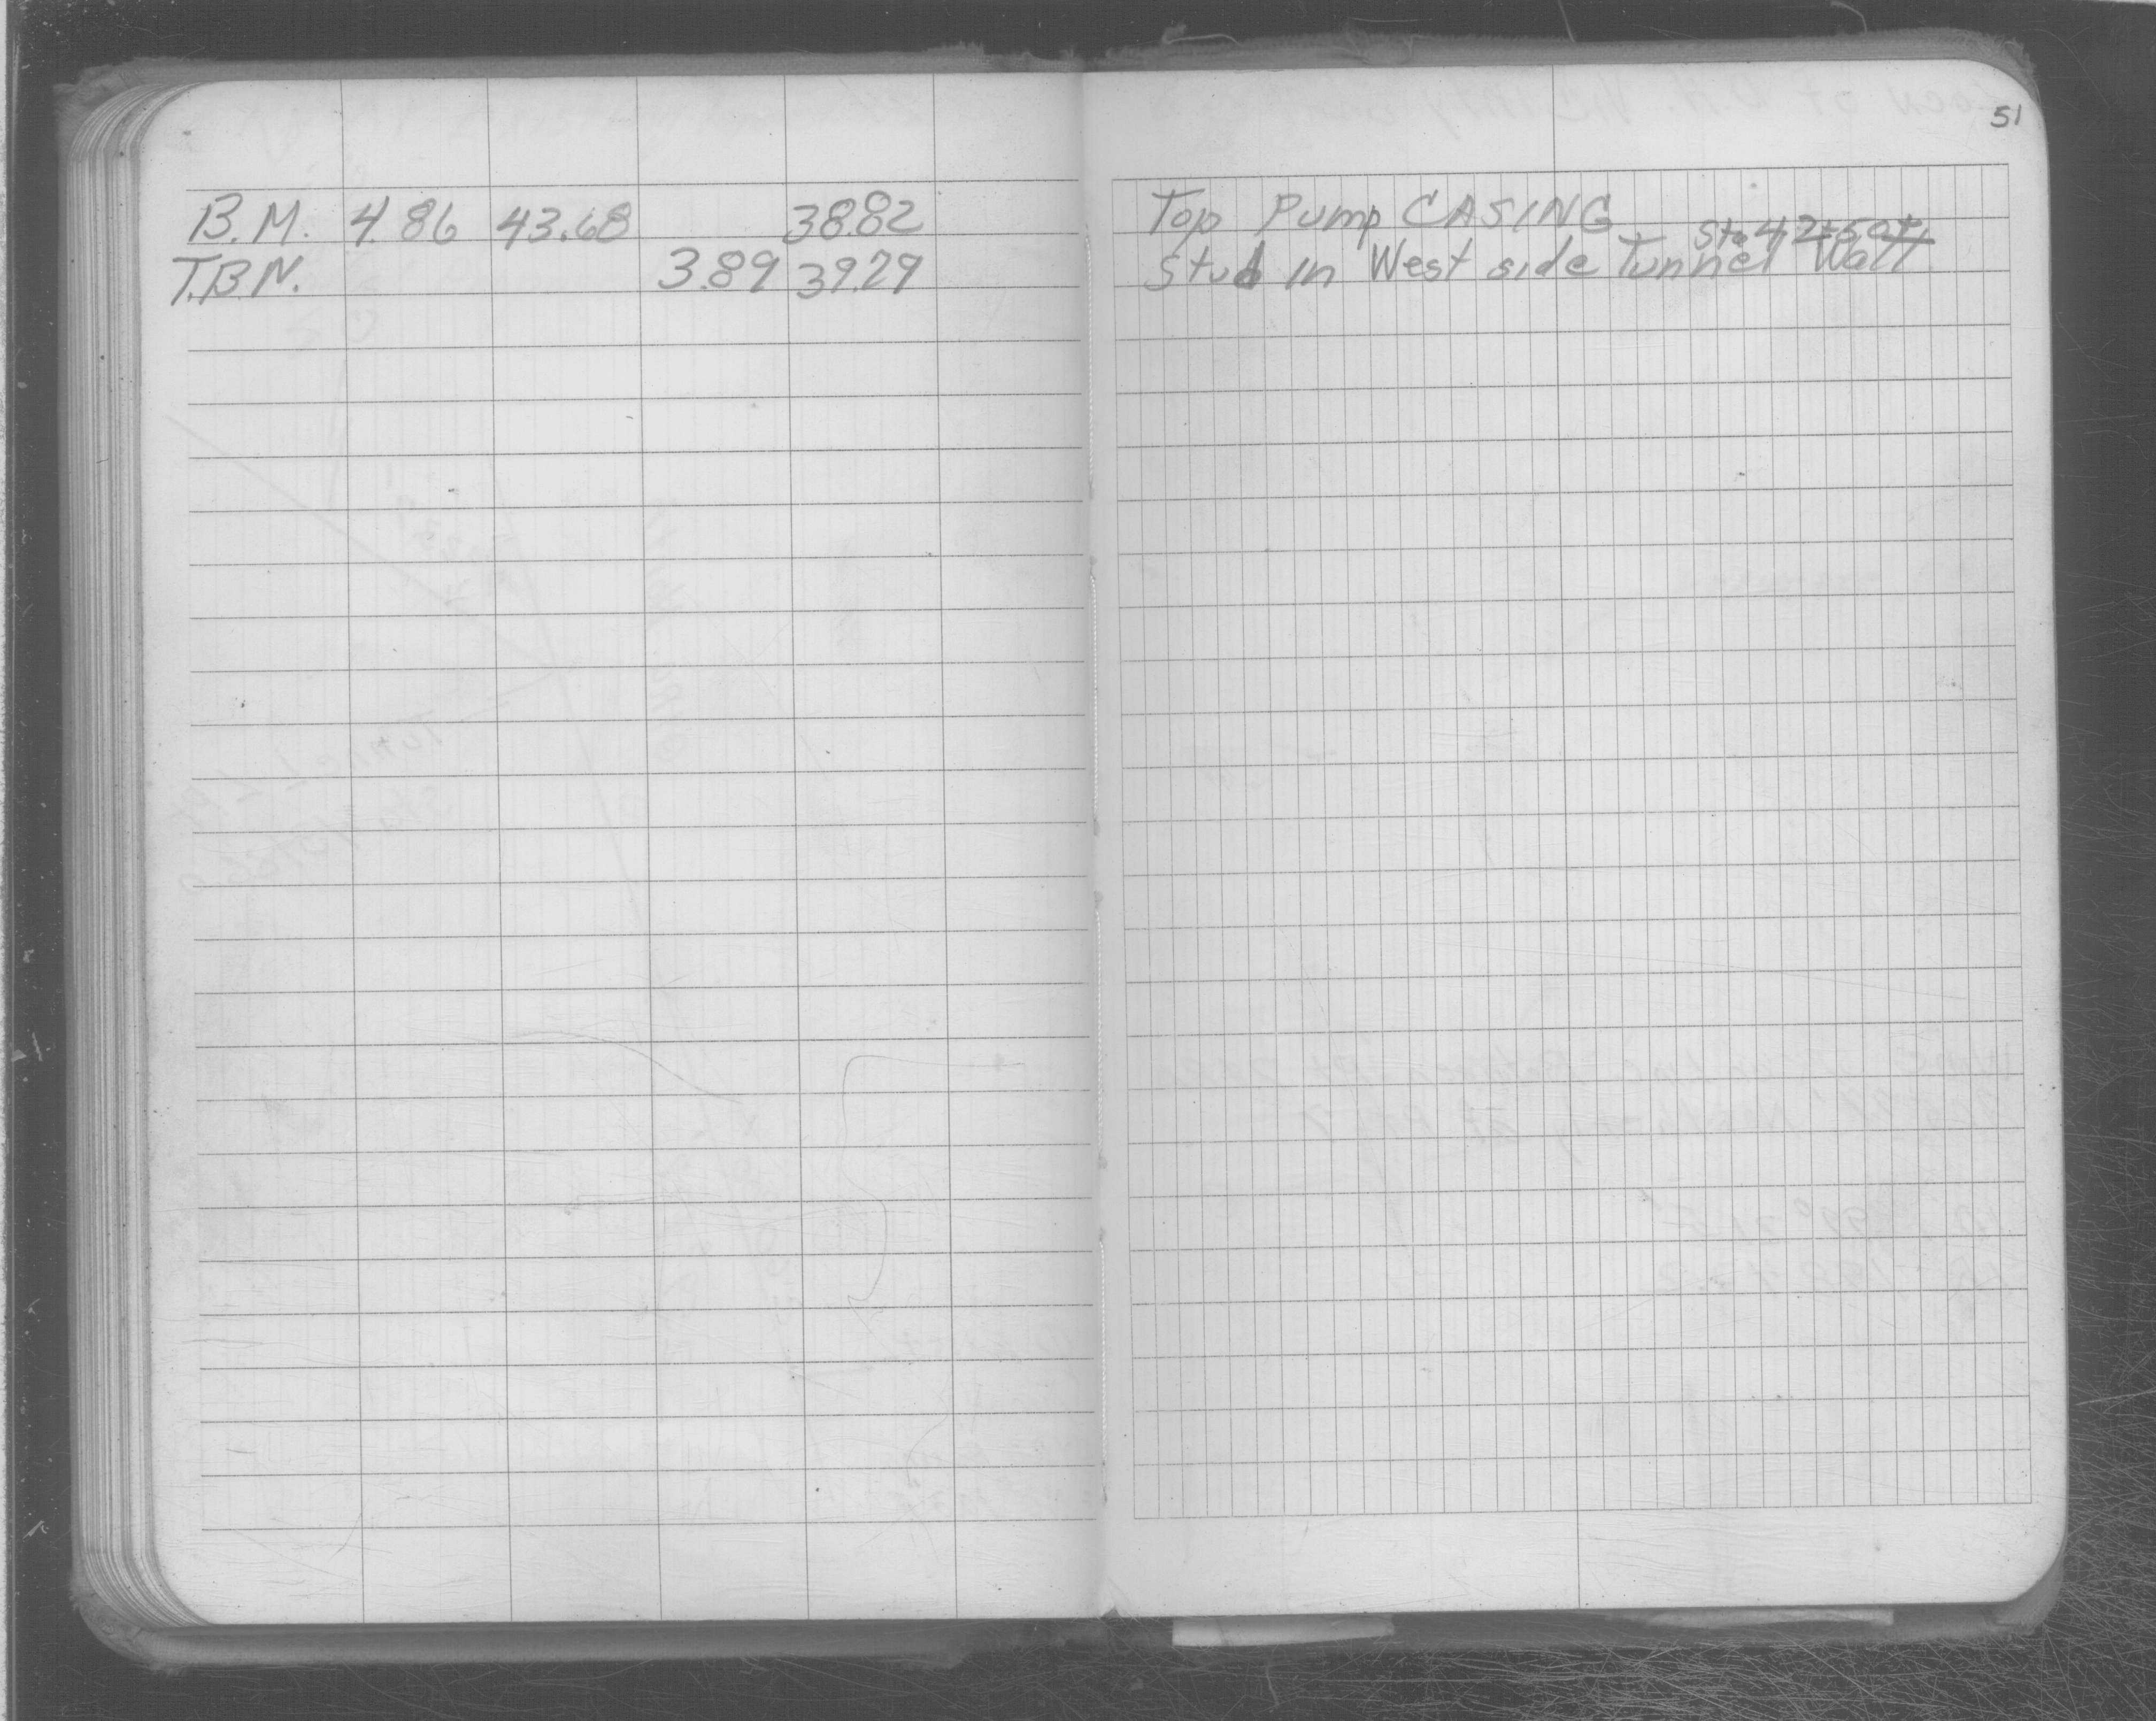 51
B.M. 4.86 43.68 38.82
T.B.N. 3.89 39.79
Top Pump CASING
Sta 42+50±
Stud in West side Tunnel Wall